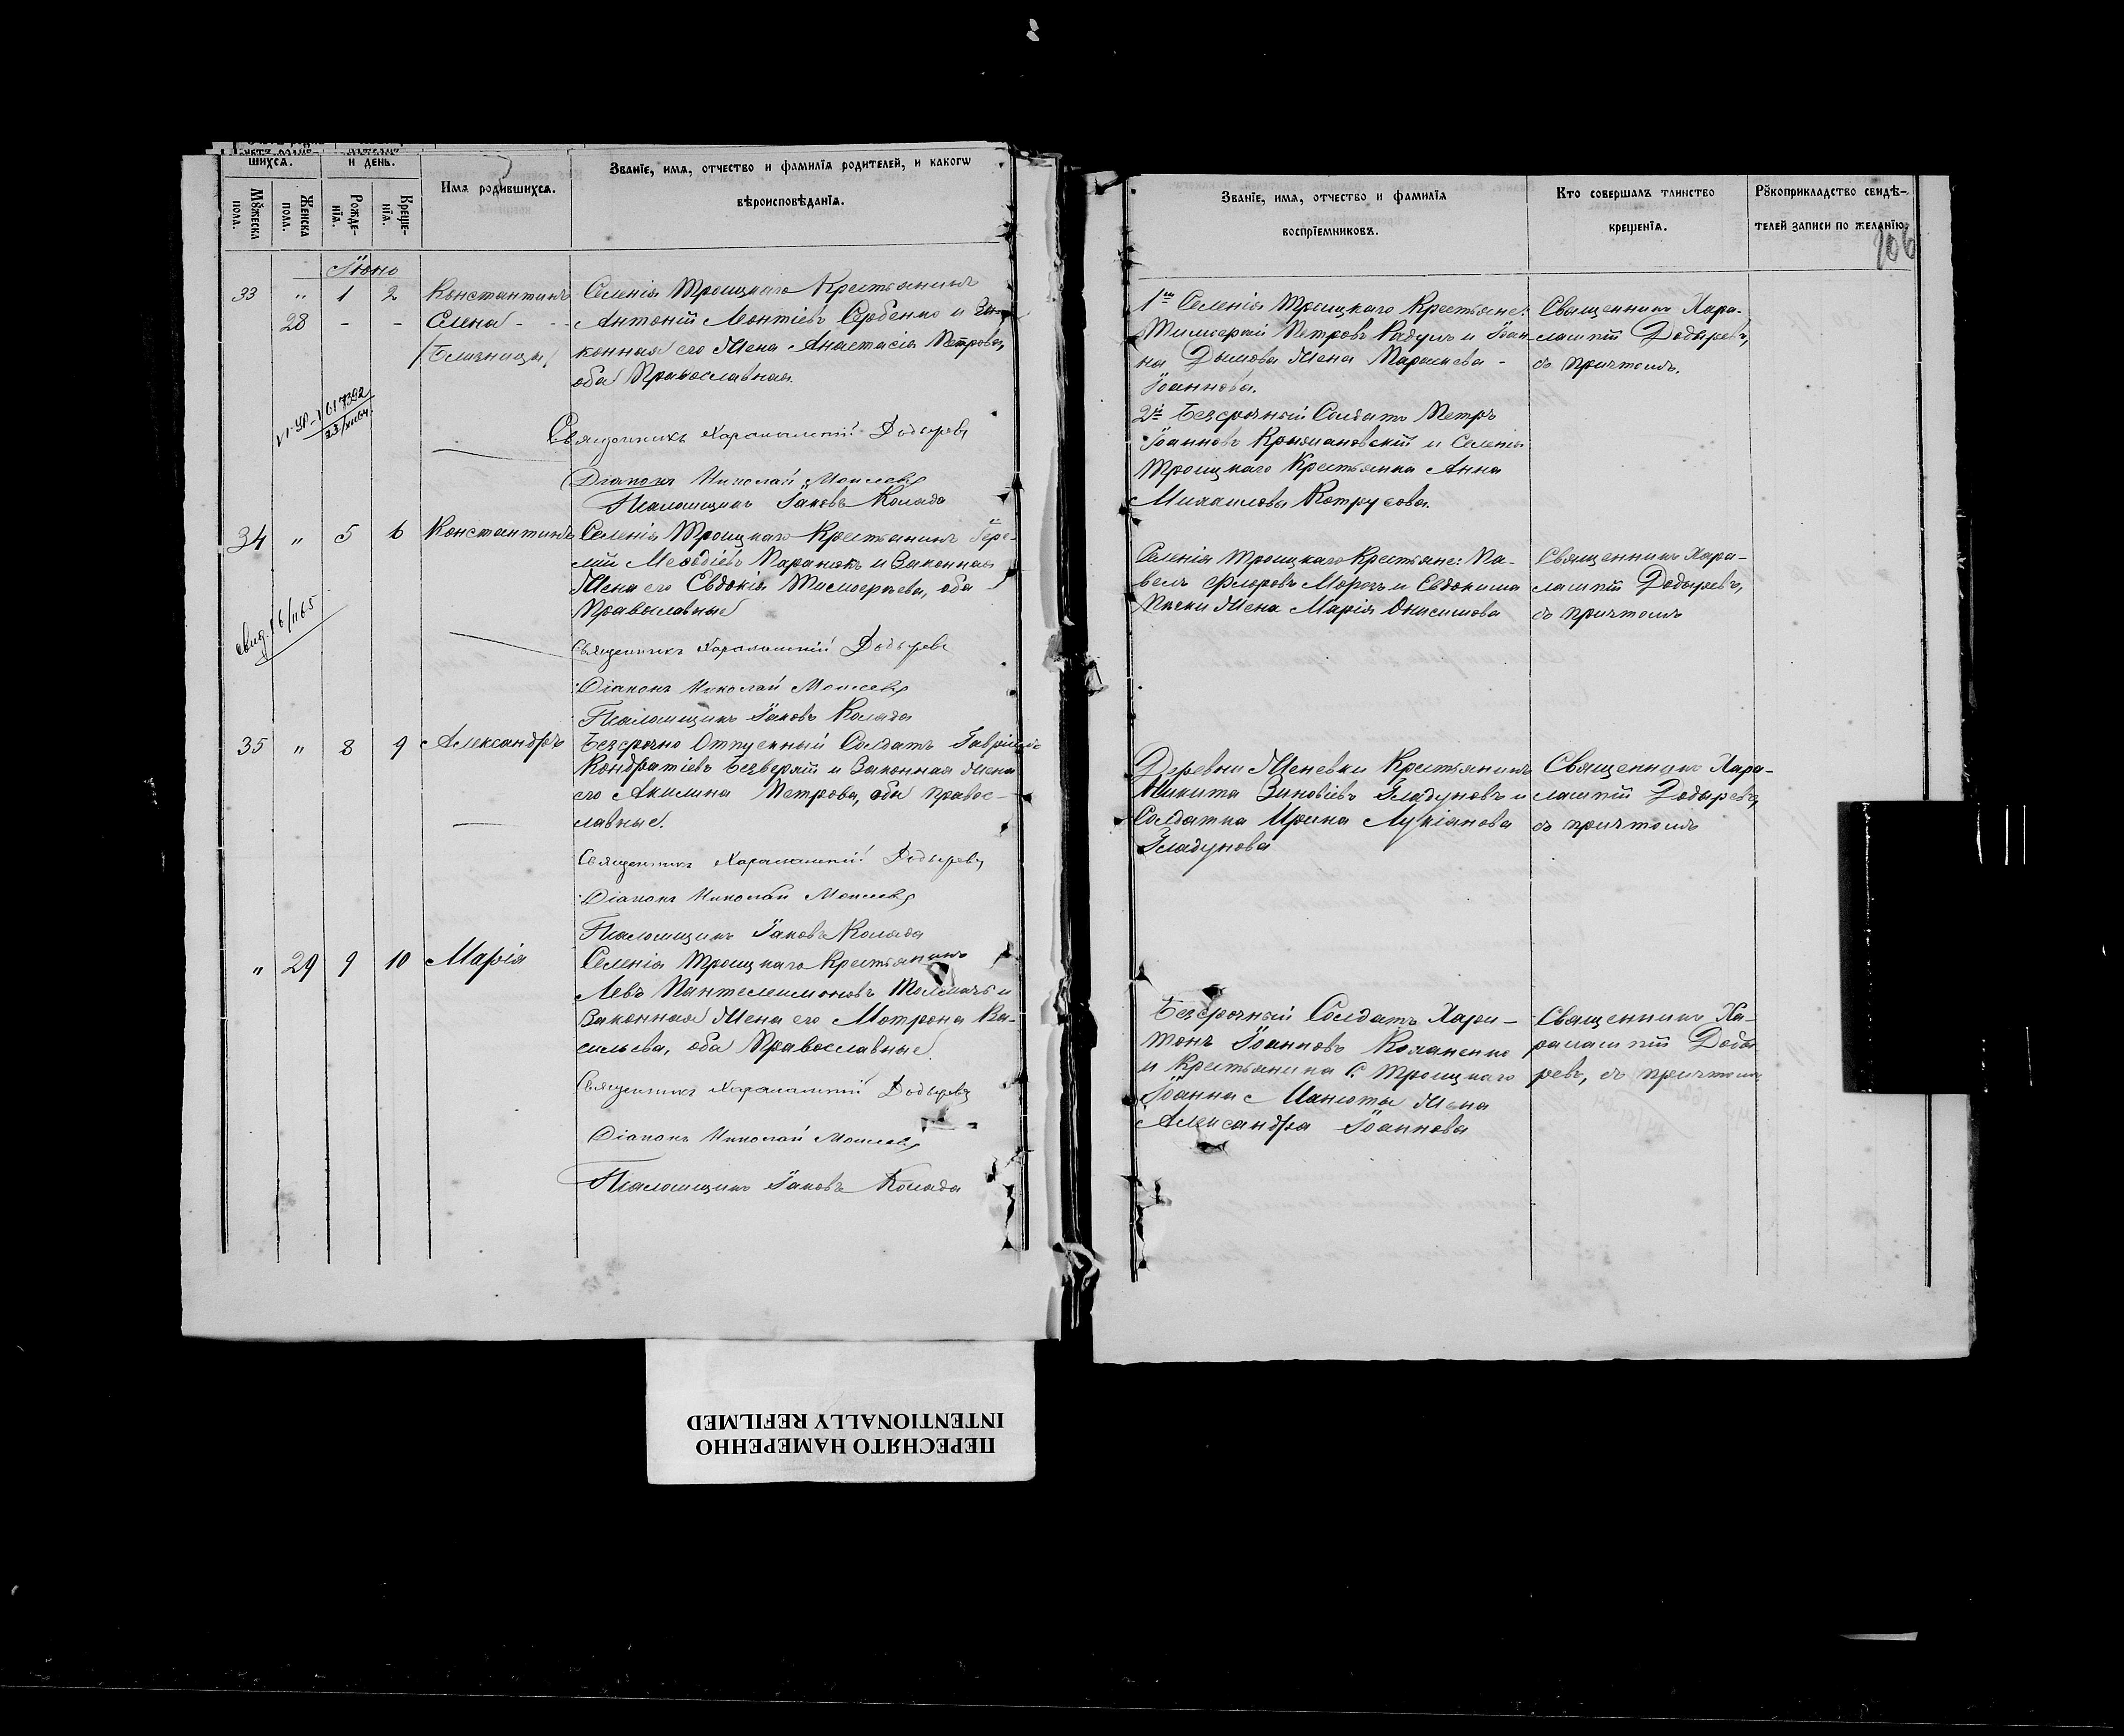 шихсѧ.
и день.
Мꙋжеска пола.
Женска пола.
Рожде-нїѧ.
Креще-нїѧ.
Имѧ родившихсѧ.
Званїе, имѧ, отчество и фамилїѧ родителей, и какогѡ
вѣроисповѣданїѧ.
Іюнь
33 " 1 2 Константинъ Селенія Троицкаго Крестьянинъ
28 - - Елена - - Антоній Леонтіевъ Сербенко и За-
/Близнецы/ конная его Жена Анастасія Петрова,
оба Православная.
Священникъ Харалампій Додыревъ
Діаконъ Николай Моисеевъ
Псаломщикъ Іаковъ Колада
34 " 5 6 Константинъ Селенія Троицкаго Крестьянинъ Іере-
мій Меѳодіевъ и Законная
Жена его Евдокія Тимоѳеева, оба
Православные
свид. 16/II 65
Священникъ Харалампій Додыревъ
Діаконъ Николай Моисеевъ
Псаломщикъ Іаковъ Колада
35 " 8 9 Александръ Безсрочно Отпускный Солдатъ Гавріилъ
Кондратіевъ Безверхій и Законная Жена
его Акилина Петрова, оба правос-
лавные.
Священникъ Харалампій Додыревъ
Діаконъ Николай Моисеевъ
Псаломщикъ Іаковъ Колада
" 29 9 10 Марія Селенія Троицкаго Крестьянинъ
Левъ Пантелеимоновъ Толмачъ и
Законная Жена его Мотрона Ва-
сильева, оба Православные.
Священникъ Харалампій Додыревъ
Діаконъ Николай Моисеевъ
Псаломщикъ Іаковъ Колада
Званїе, имѧ, отчество и фамилїѧ
воспрїемниковъ.
Кто совершалъ таинство
крещенїѧ.
Рꙋкоприкладство свидѣ-
телей записи по желанїю.
106
1го Селенія Троицкаго Крестьяне:
Тимоѳей Петровъ Радулъ и Іоан-
на Дымова Жена Параскева -
Іоаннова.
2й Безсрочный Солдатъ Петръ
Іоанновъ Крыжановскій и Селенія
Троицкаго Крестьянка Анна
Михаилова Котрусова.
Священникъ Хара-
лампій Додыревъ,
съ причтомъ.
Селенія Троицкаго Крестьяне: Па-
велъ Флоровъ Морозъ и Евдокима
Жена Марія Онисимова
Священникъ Хара-
лампій Додыревъ,
съ причтомъ
Деревни Меневки Крестьянинъ
Никита Зиновіевъ Гладуновъ и
Солдатка Ирина Лукіянова
Гладунова
Священникъ Хара-
лампій Додыревъ,
съ причтомъ
Безсрочный Солдатъ Хари-
тонъ Іоанновъ Команенко
и Крестьянина С. Троицкаго
Іоанна Манюты Жена
Александра Іоаннова
Священникъ Ха-
ралампій Доды-
ревъ, съ причтомъ
ПЕРЕСНЯТО НАМЕРЕННО
INTENTIONALLY REFILMED